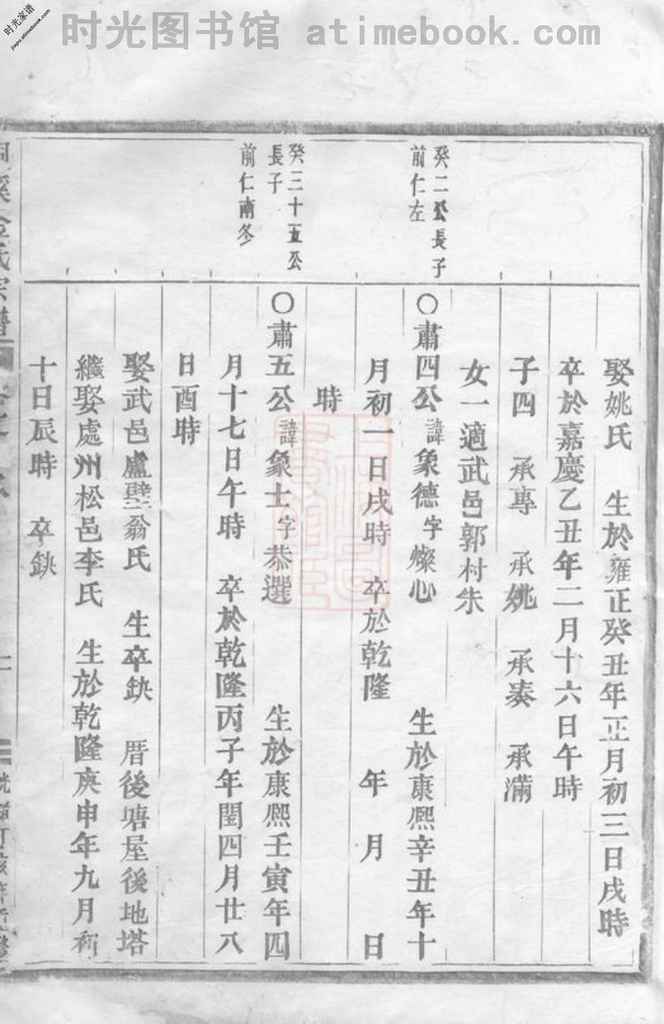 时光图书馆 atimebook.com
时光家谱
娶姚氏 生於雍正癸丑年正月初三日戌時
卒於嘉慶乙丑年二月十六日午時
子四 承專 承姚 承湊 承滿
女一適武邑郭村朱
癸二公長子
前仁左
○肅四公諱象德字燦心 生於康熙辛丑年十
月初一日戌時 卒於乾隆 年 月 日
時
癸三十五公
長子
前仁南冬
○肅五公諱象士字恭選 生於康熙壬寅年四
月十七日午時 卒於乾隆丙子年閏四月廿八
日酉時
娶武邑盧壁翁氏 生卒缺 厝後塘屋後地塔
繼娶處州松邑李氏 生於乾隆庚申年九月初
十日辰時 卒缺
溪金氏宗譜